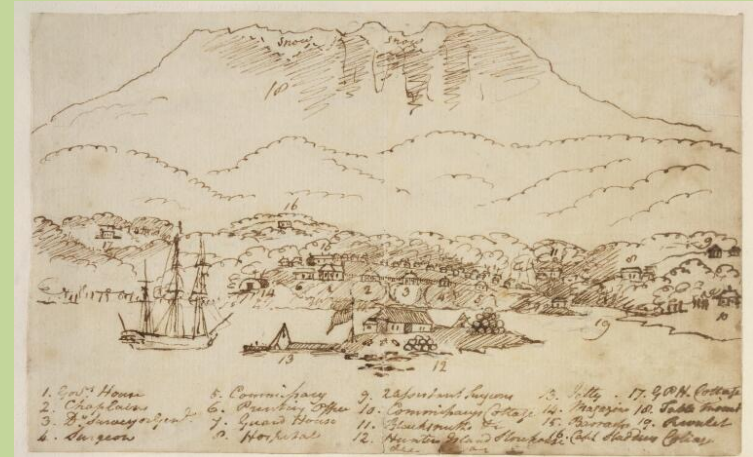 Snow Snow
18
16
17
15
11
8
9
14
6
1
2
3
4
5
10
19
13
12
1. Govrs House
2. Chaplains
3. Dy Surveyor Genl
4. Surgeon
5. Commissary
6. Printing Office
7. Guard House
8. Hospital
9. 2 Assistant Surgeons
10. Commissarys Cottage
11. Blacksmiths &c
12. Hunter Island Storehouse
13. Jetty
14. Magazine
15. Barracks
16. Capt Cottage
17. G.P.H. Cottage
18. Table Mount
19. Rivulet